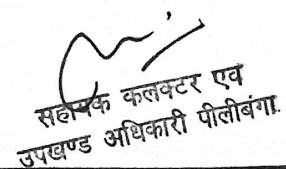 सहायक कलक्टर एव
उपखण्ड अधिकारी पीलीबंगा.